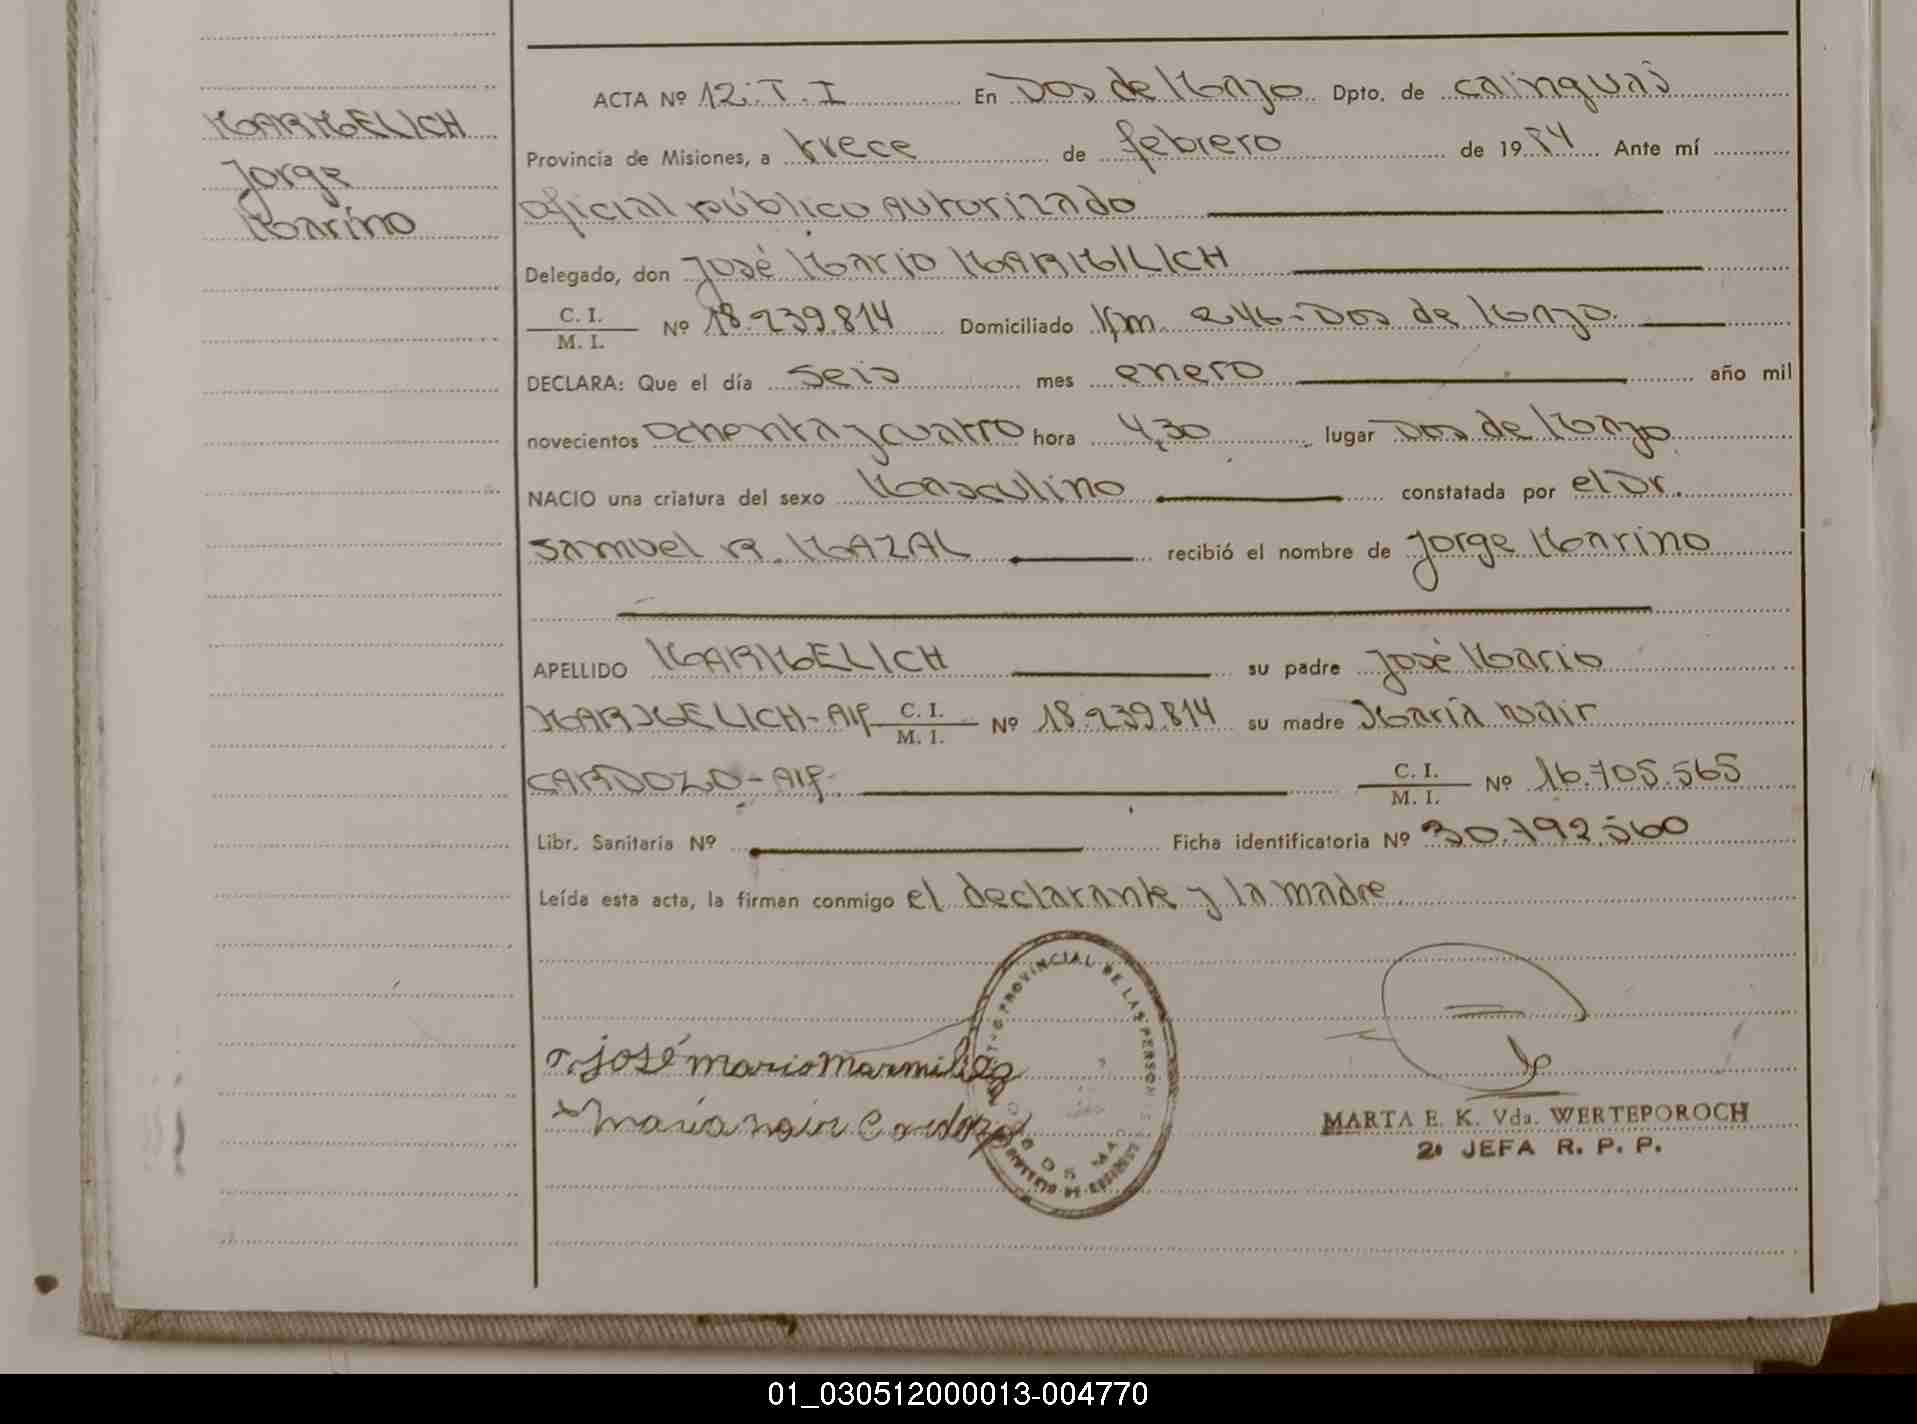 MARMELICH
Jorge
Marino
ACTA Nº 12. T. I En Dos de Mayo Dpto. de Cainguás
Provincia de Misiones, a trece de febrero de 1984 Ante mí
oficial público autorizado
Delegado, don José Mario MARMILICH
C. I.
M. I. Nº 18.239.814 Domiciliado Km. 246-Dos de Mayo.
DECLARA: Que el día seis mes enero año mil
novecientos ochenta y cuatro hora 4,30 lugar Dos de Mayo
NACIO una criatura del sexo Masculino constatada por el Dr.
Samuel R. MAZAL recibió el nombre de Jorge Marino
APELLIDO MARMELICH su padre José Mario
MARMELICH-Aip C. I.
M. I. Nº 18.239.814 su madre María Nair
CARDOZO-Aip. C. I.
M. I. Nº 16.705.565
Libr. Sanitaria Nº Ficha identificatoria Nº 30.792.560
Leída esta acta, la firman conmigo el declarante y la madre.
José Mario Marmilich
María nair Cardozo
PROVINCIAL DE LAS PERSONAS
DOS MAYO
MARTA E. K. Vda. WERTEPOROCH
2ª JEFA R. P. P.
01_030512000013-004770